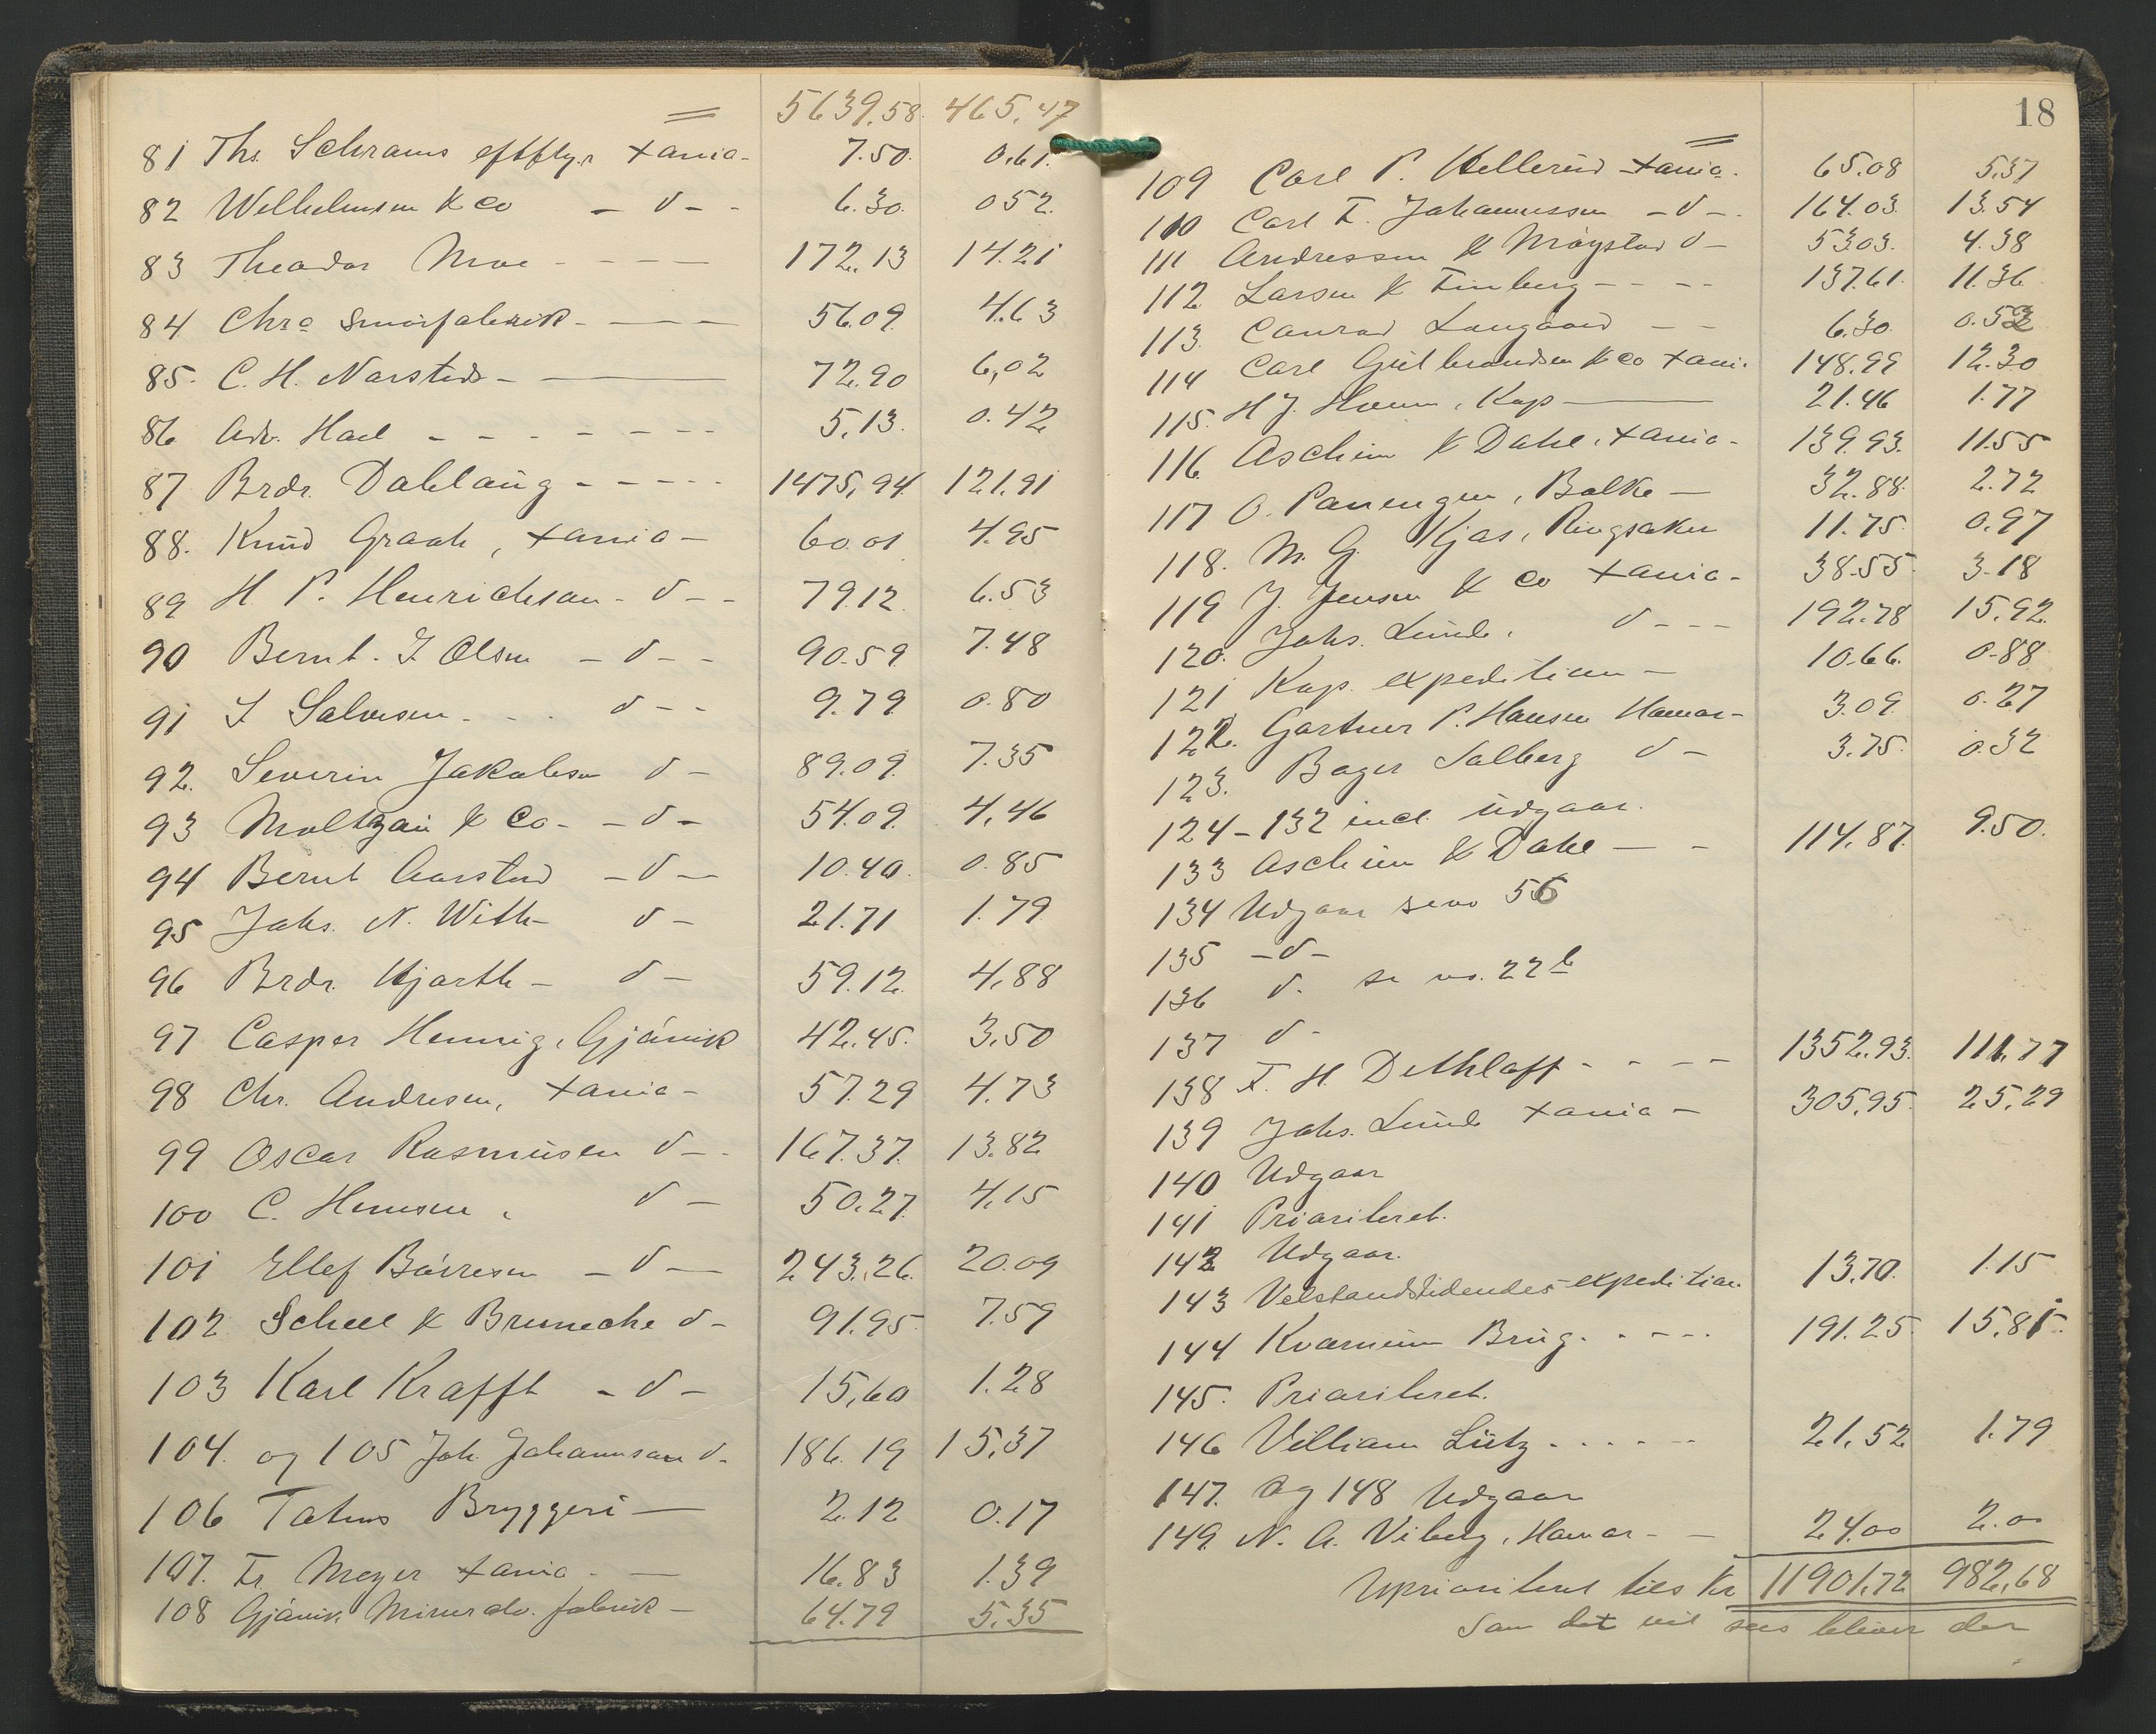 5639.58 465.47
81 Ths. Schrams eftflgr Xania - 7.50 0.61
82 Wilhelmsen & Co - d - - 6.30 0.52
83 Theodor Moe - - - - 172.13 14.21
84 Chra Smørfabrik - - - - 56.09 4.63
85. C. H. Narsteds - - 72.90 6,02
86 Adv. Hael - - - - - - - 5.13 0.42
87 Brdr. Dahlaug - - - - - 1475,94 121.91
88. Knud Graah, Xania - 60.01 4.95
89 H. P. Henrichsen - d - - 79.12 6.53
90 Bernt. I. Olsen - d - - 90.59 7.48
91 I. Salvesen - - - d - - 9.79 0.80
92. Severin Jakobsen d - 89.09 7.35
93 Moltzau & Co - - d - 54.09 4,46
94 Bernt Aarstad - d - 10.40 0.85
95 Johs. N. With - d - 21.71 1.79
96 Brdr. Hjorth - d - 59.12 4,88
97 Casper Hennig, Gjøvik 42.45 3,50
98 Chr. Andresen, Xania - 57.29 4.73
99 Oscar Rasmusen d - - 167.37 13.82
100 C. Hemsen, d - 50.27 4,15
101 Ellef Børresen - d - 243.26 20.09
102 Scheel & Brunecke d - 91.95 7.59
103 Karl Krafft - d - 15,60 1.28
104. og 105 Joh. Johannsen d - 186.19 15.37
106 Totens Bryggeri - 2.12 0.17
107. Fr. Meyer Xania - - 16.83 1.39
108 Gjøvik Mineralv. fabrik - 64.79 5.35
18
109 Carl P. Hellerud Xania - 65.08 5.37
110 Carl F. Johannessen - d - 164.03 13.54
111 Andressen & Møystad d - 53.03 4.38
112 Larsen & Finberg - - - - 137.61 11.36
113. Conrad Langaard - - 6.30 0.52
114 Carl Gulbrandsen & Co Xania 148.99 12.30
115. H J. Hoven, Kap 21.46 1.77
116 Aschim & Dahl, Xania - 139.93 11.55
117 O. Panengen, Balke - 32.88 2.72
118. M. G. Kjos, Ringsaker 11.75 0.97
119 J. Jensen & Co Xania - 38.55 3.18
120. Johs. Lunde, d - - - 192.78 15.92
121 Kaps. expedition - 10.66 0.88
122. Gartner P. Hansen Hamar - 3.09 0.27
123. Bager Solberg d - 3.75 0.32
124 - 132 incl. udgaar.
133 Aschim & Dahl - - 114.87 9.50
134 Udgaar seno 56
135 - d -
136 d. se no. 22 b
137 d -
138 F. H Dethloff - - - - 1352.93 111.77
139 Johs. Lunde Xania - 305.95 25.29
140 Udgaar
141 Prioriteret.
142 Udgaar.
143 Velstandstidendes expedition 13.70 1.15
144 Kvarnum Brug. - - - - 191.25 15.81
145. Prioriteret.
146 Villiam Lütz - - - - - - 21.52 1.79
147. og 148 Udgaar
149. N. A. Viberg, Hamar - - 24.00 2.00
Uprioriteret tils Kr 11901.72 982,68
Som det vil sees bliver der